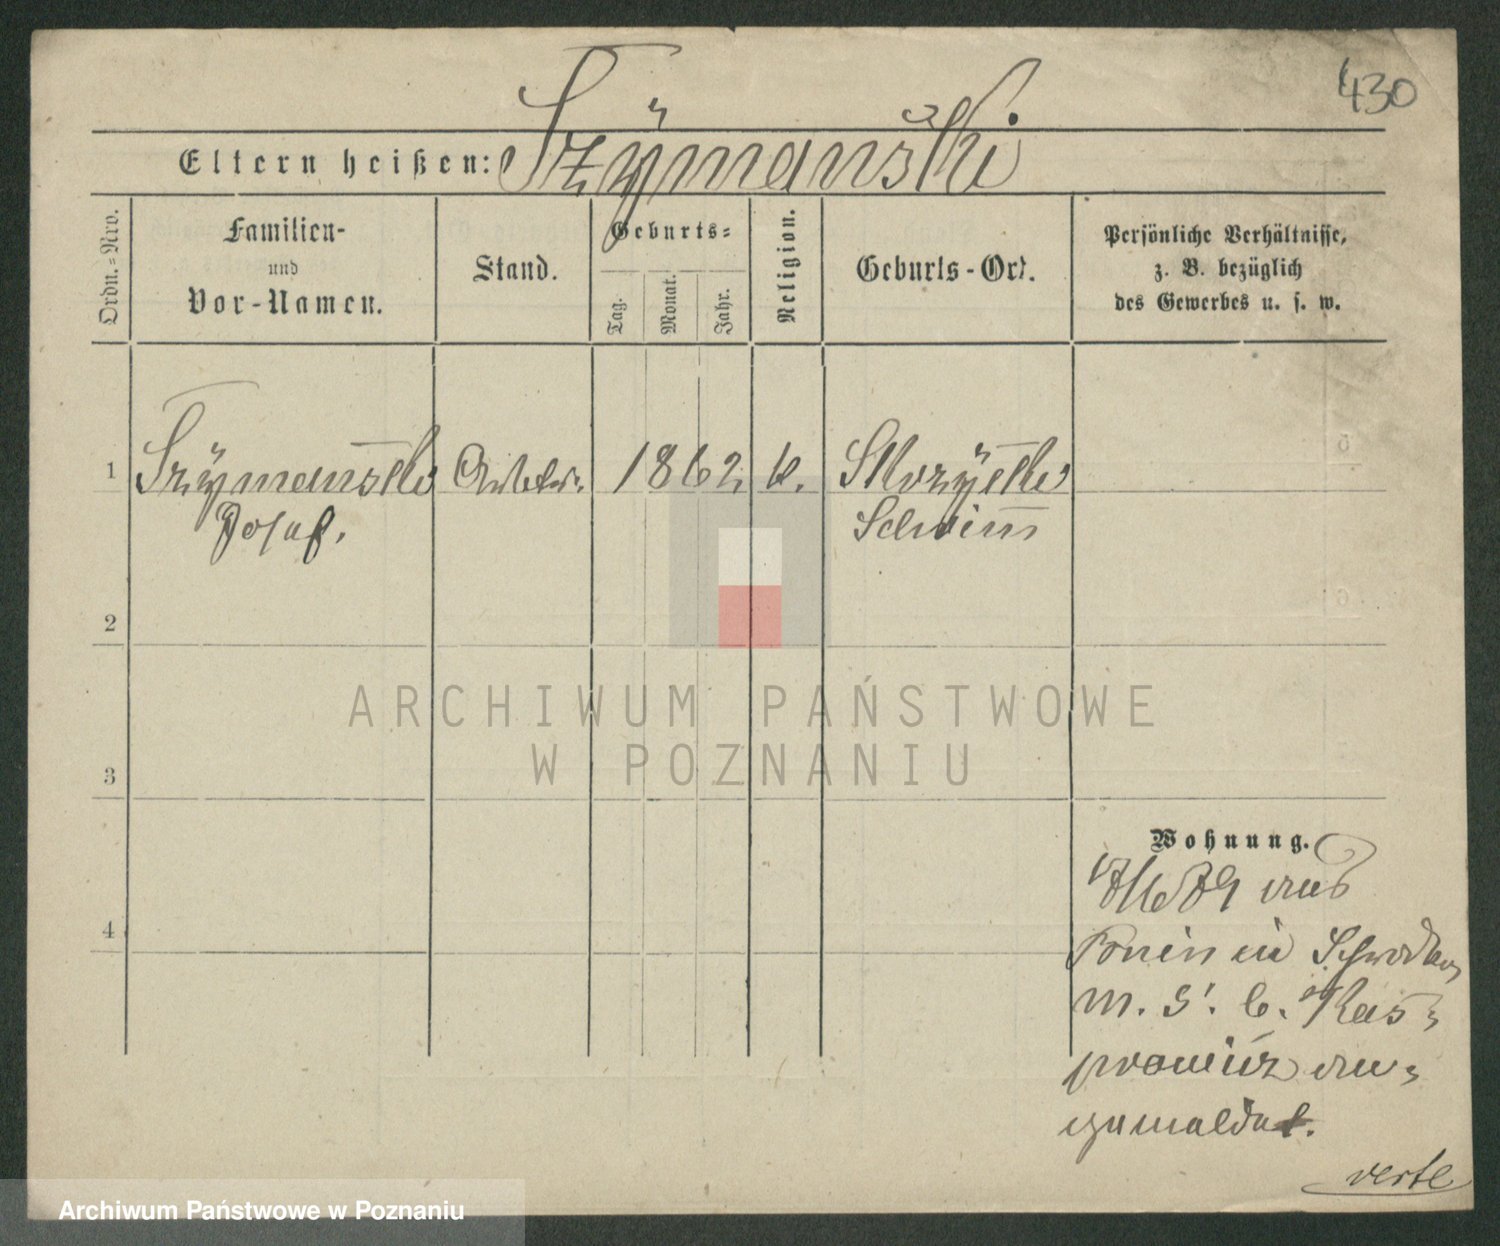 430
Eltern heißen: Szÿmański
Ordn.=Nro.
Familien-
und
Vor-Namen.
Stand.
Geburts=
Tag.
Monat.
Jahr.
Religion.
Geburts-Ort.
Persönliche Verhältnisse,
z. B. bezüglich
des Gewerbes u. s. w.
1 Szÿmański 1862 k.
Josef. Schrimm
2
3
Wohnung.
aus
4
in
m. S.
an=
gemeldet.
verte
ARCHIWUM PAŃSTWOWE
W POZNANIU
Archiwum Państwowe w Poznaniu